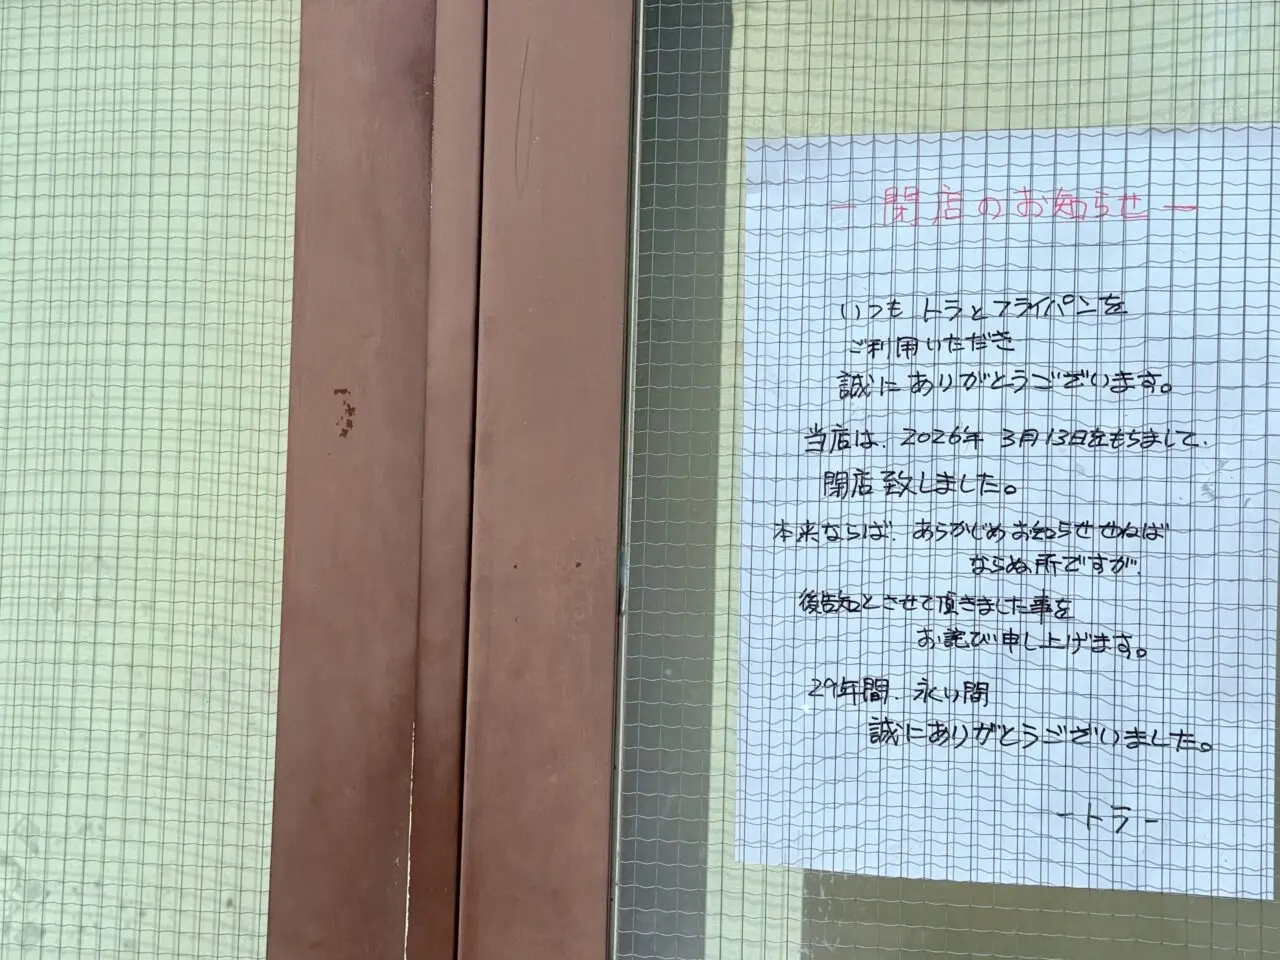 －閉店のお知らせ－
いつもトラとフライパンを
ご利用いただき
誠にありがとうございます。
当店は、2026年 3月13日をもちまして、
閉店致しました。
本来ならば、あらかじめお知らせせねば
ならぬ所ですが、
後告知とさせて頂きました事を
お詫び申し上げます。
29年間、永い間
誠にありがとうございました。
－トラ－